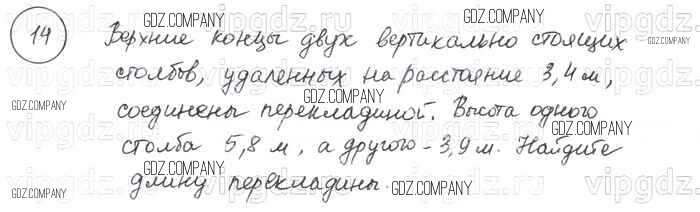 14 Верхние концы двух вертикально стоящих
столбов, удаленных на расстояние 3,4 м,
соединены перекладиной. Высота одного
столба 5,8 м, а другого - 3,9 м. Найдите
длину перекладины.
GDZ.COMPANY
GDZ.COMPANY
GDZ.COMPANY
GDZ.COMPANY
GDZ.COMPANY
GDZ.COMPANY
GDZ.COMPANY
GDZ.COMPANY
GDZ.COMPANY
GDZ.COMPANY
vipgdz.ru
vipgdz.ru
vipgdz.ru
vipgdz.ru